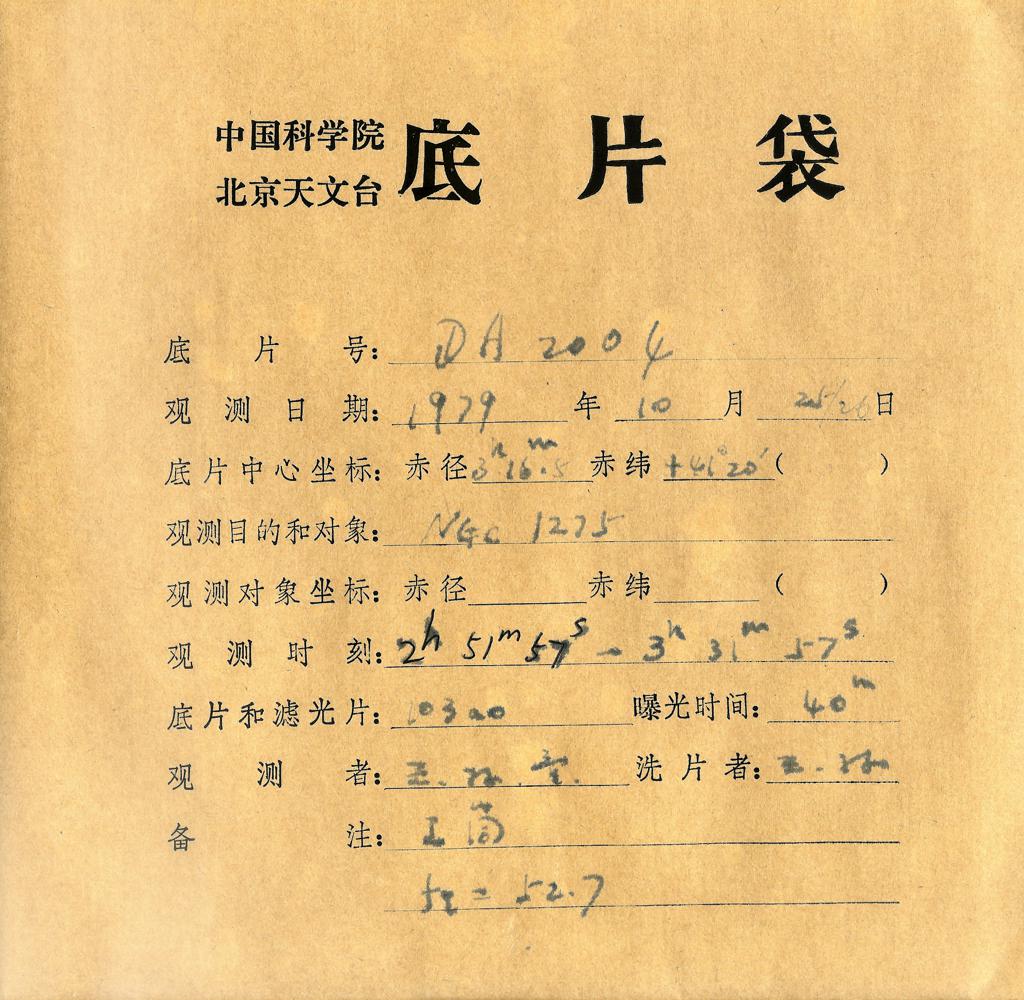 中国科学院
北京天文台
底片袋
底片号: DA 2004
观测日期: 1979 年 10 月 25/26 日
底片中心坐标: 赤径 3h 16m.5 赤纬 +41°20′ ( )
观测目的和对象: NGC 1275
观测对象坐标: 赤径 赤纬 ( )
观测时刻: 2h 51m 57s - 3h 31m 57s
底片和滤光片: 103aO 曝光时间: 40m
观测者: 王. 洗片者: 王.
备注:
= 52.7